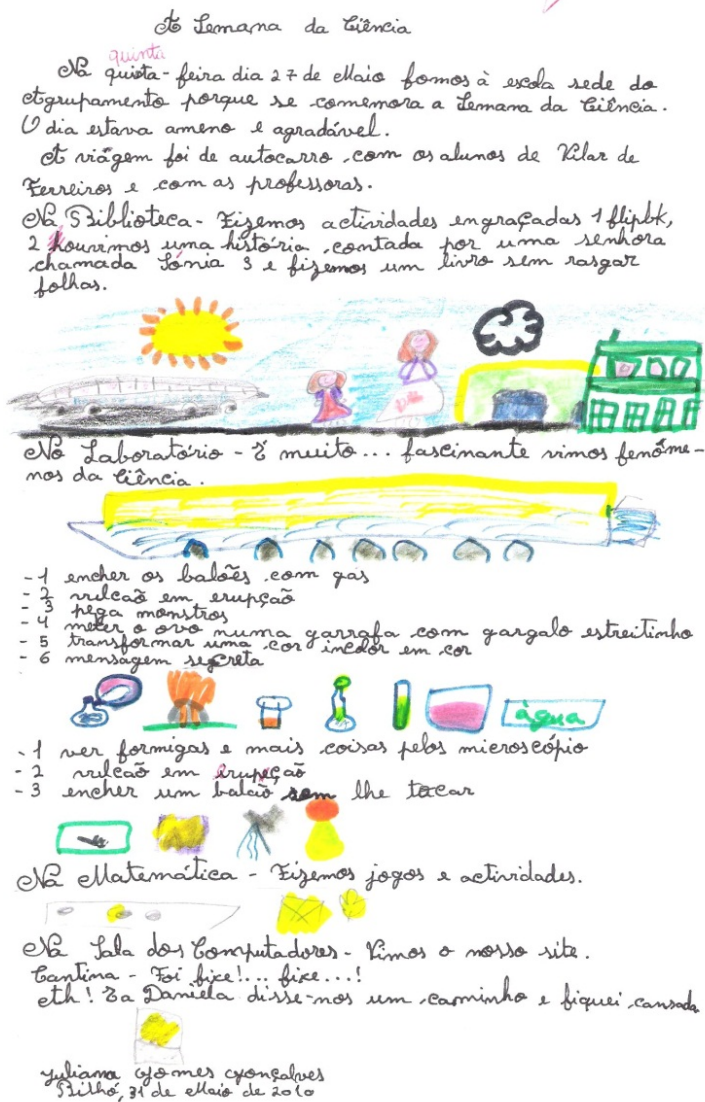 A Semana da Ciência
quinta
Na quista-feira dia 27 de Maio fomos à escola sede do
Agrupamento porque se comemora a Semana da Ciência.
O dia estava ameno e agradável.
A viagem foi de autocarro com os alunos de Vilar de
Ferreiros e com as professoras.
Na Biblioteca - Fizemos actividades engraçadas 1 flipbk,
2 houvimos uma história contada por uma senhora
chamada Sónia 3 e fizemos um livro sem rasgar
folhas.
No Laboratório - É muito... fascinante vimos fenóme-
nos da Ciência.
-1 encher os balões com gás
-2 vulcaõ em erupção
-3 pega monstros
-4 meter o ovo numa garrafa com gargalo estreitinho
-5 transformar uma cor incolor em cor
-6 mensagem secreta
água
-1 ver formigas e mais coisas pelos microscópio
-2 vulcaõ em erupeçaõ
-3 encher um balaõ sem lhe tocar
Na Matemática - Fizemos jogos e actividades.
Na Sala dos Computadores - Vimos o nosso site.
Cantina - Foi fixe!... fixe...!
Ah! E a Daniela disse-nos um caminho e fiquei cansada
Juliana Gomes Gonçalves
Bilhó, 31 de Maio de 2010